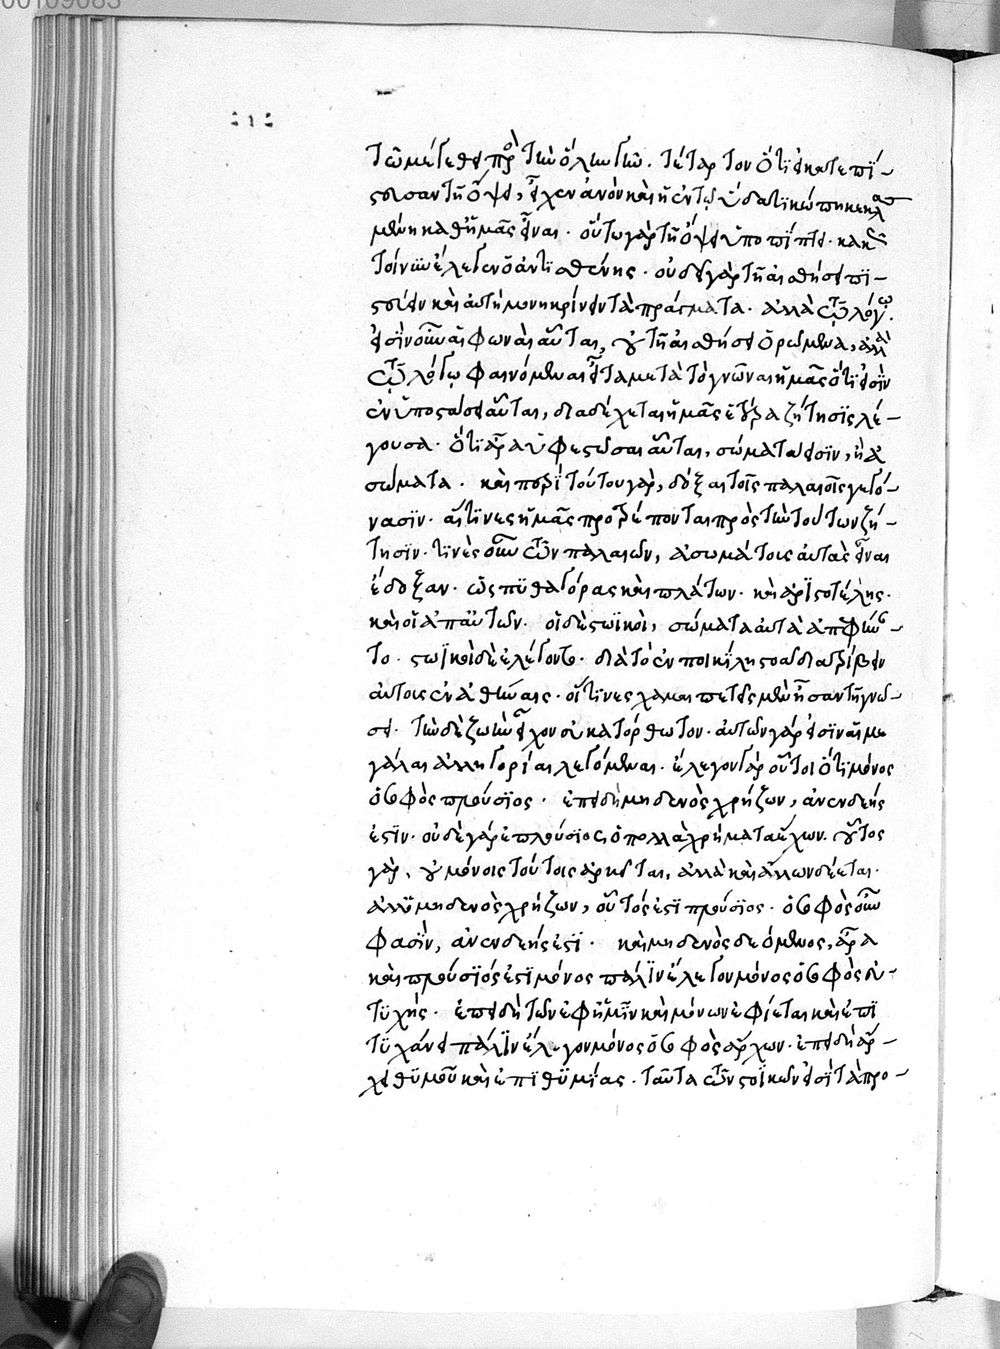 00109083
τῶ μεγέθει πρὸς τὴν ὅλην γῆν. τέταρτον ὅτι εἰ κατεπί-
στευσαν τῇ ὄψει, εἶχεν ἂν οὖν καὶ ἡ ἐν τῷ ὕδατι κώπη κεκλασ
μένη καθ' ἡμᾶς εἶναι. οὕτω γὰρ τῇ ὄψει ὑποπίπτει. κακῶς
τοίνυν ἔλεγεν ὁ ἀντισθένης. οὐ δεῖ γὰρ τῇ αἰσθήσει πι-
στεύειν καὶ αὐτῇ μόνῃ κρίνειν τὰ πράγματα. ἀλλὰ τῷ λόγῳ.
εἰσὶν οὖν αἱ φωναὶ αὗται, οὐ τῇ αἰσθήσει ὁρώμεναι, ἀλλὰ
τῷ λόγῳ φαινόμεναι εἶτα μετὰ τὸ γνῶναι ἡμᾶς ὅτι εἰσὶν
ἐν ὑποστάσει αὗται, διαδέχεται ἡμᾶς ἑτέρα ζήτησις λέ-
γουσα. ὅτι ἄρα ὑφεστῶσαι αὗται, σώματα εἰσιν, ἢ ἀ
σώματα. καὶ περὶ τούτου γὰρ, δόξαι τοῖς παλαιοῖς γεγό-
νασιν. αἵτινες ἡμᾶς προτρέπονται πρὸς τὴν τούτων ζή-
τησιν. τινὲς οὖν τῶν παλαιῶν, ἀσωμάτους αὐτὰς εἶναι
ἐδοξαν. ὡς πυθαγόρας καὶ πλάτων. καὶ ἀριστοτέλης.
καὶ οἱ ἀπ' αὐτῶν. οἱ δὲ στωϊκοὶ, σώματα αὐτὰ ἀπεφήναν-
το. στωϊκοὶ δὲ ἐλέγοντο. διὰ τὸ ἐν ποικίλῃ στοᾶ διατρίβειν
αὐτοὺς ἐν ἀθήναις. οἵτινες χαμαιπετεῖς μὲν ἦσαν τῇ γνώ-
σει. τὴν δὲ ζωὴν εἶχον οὐ κατόρθωτον. αὐτῶν γάρ εἰσιν αἱ με
γάλαι ἀλληγορίαι λεγόμεναι. ἔλεγον γὰρ οὗτοι ὅτι μόνος
ὁ σοφὸς πλούσιος. ἐπειδὴ μηδενὸς χρήζων, ἀνενδεής
ἐστιν. οὐδὲ γάρ ἐ πλούσιος, ὁ πολλὰ χρήματα ἔχων. οὗτος
γὰρ, οὐ μόνοις τούτοις ἀρκεῖται, ἀλλὰ καὶ ἄλλων δέεται.
ἀλλ' ὁ μηδενὸς χρήζων, οὗτός ἐστι πλούσιος. ὁ σοφὸς οὖν
φασὶν, ἀνενδεής ἐστι. καὶ μηδενὸς δεόμενος, ἄρα
καὶ πλούσιός ἐστι μόνος πάλιν ἔλεγον μόνος ὁ σοφὸς εὐ-
τυχής. ἐπειδὴ τῶν ἐφ' ἡμῖν καὶ μόνων ἐφίεται καὶ ἐπι
τυχάνει πάλιν ἔλεγον μόνος ὁ σοφὸς ἄρχων. ἐπειδὴ ἄρ-
χει θυμοῦ καὶ ἐπιθυμίας. ταῦτα τῶν στοϊκῶν εἰσι τὰ προ-